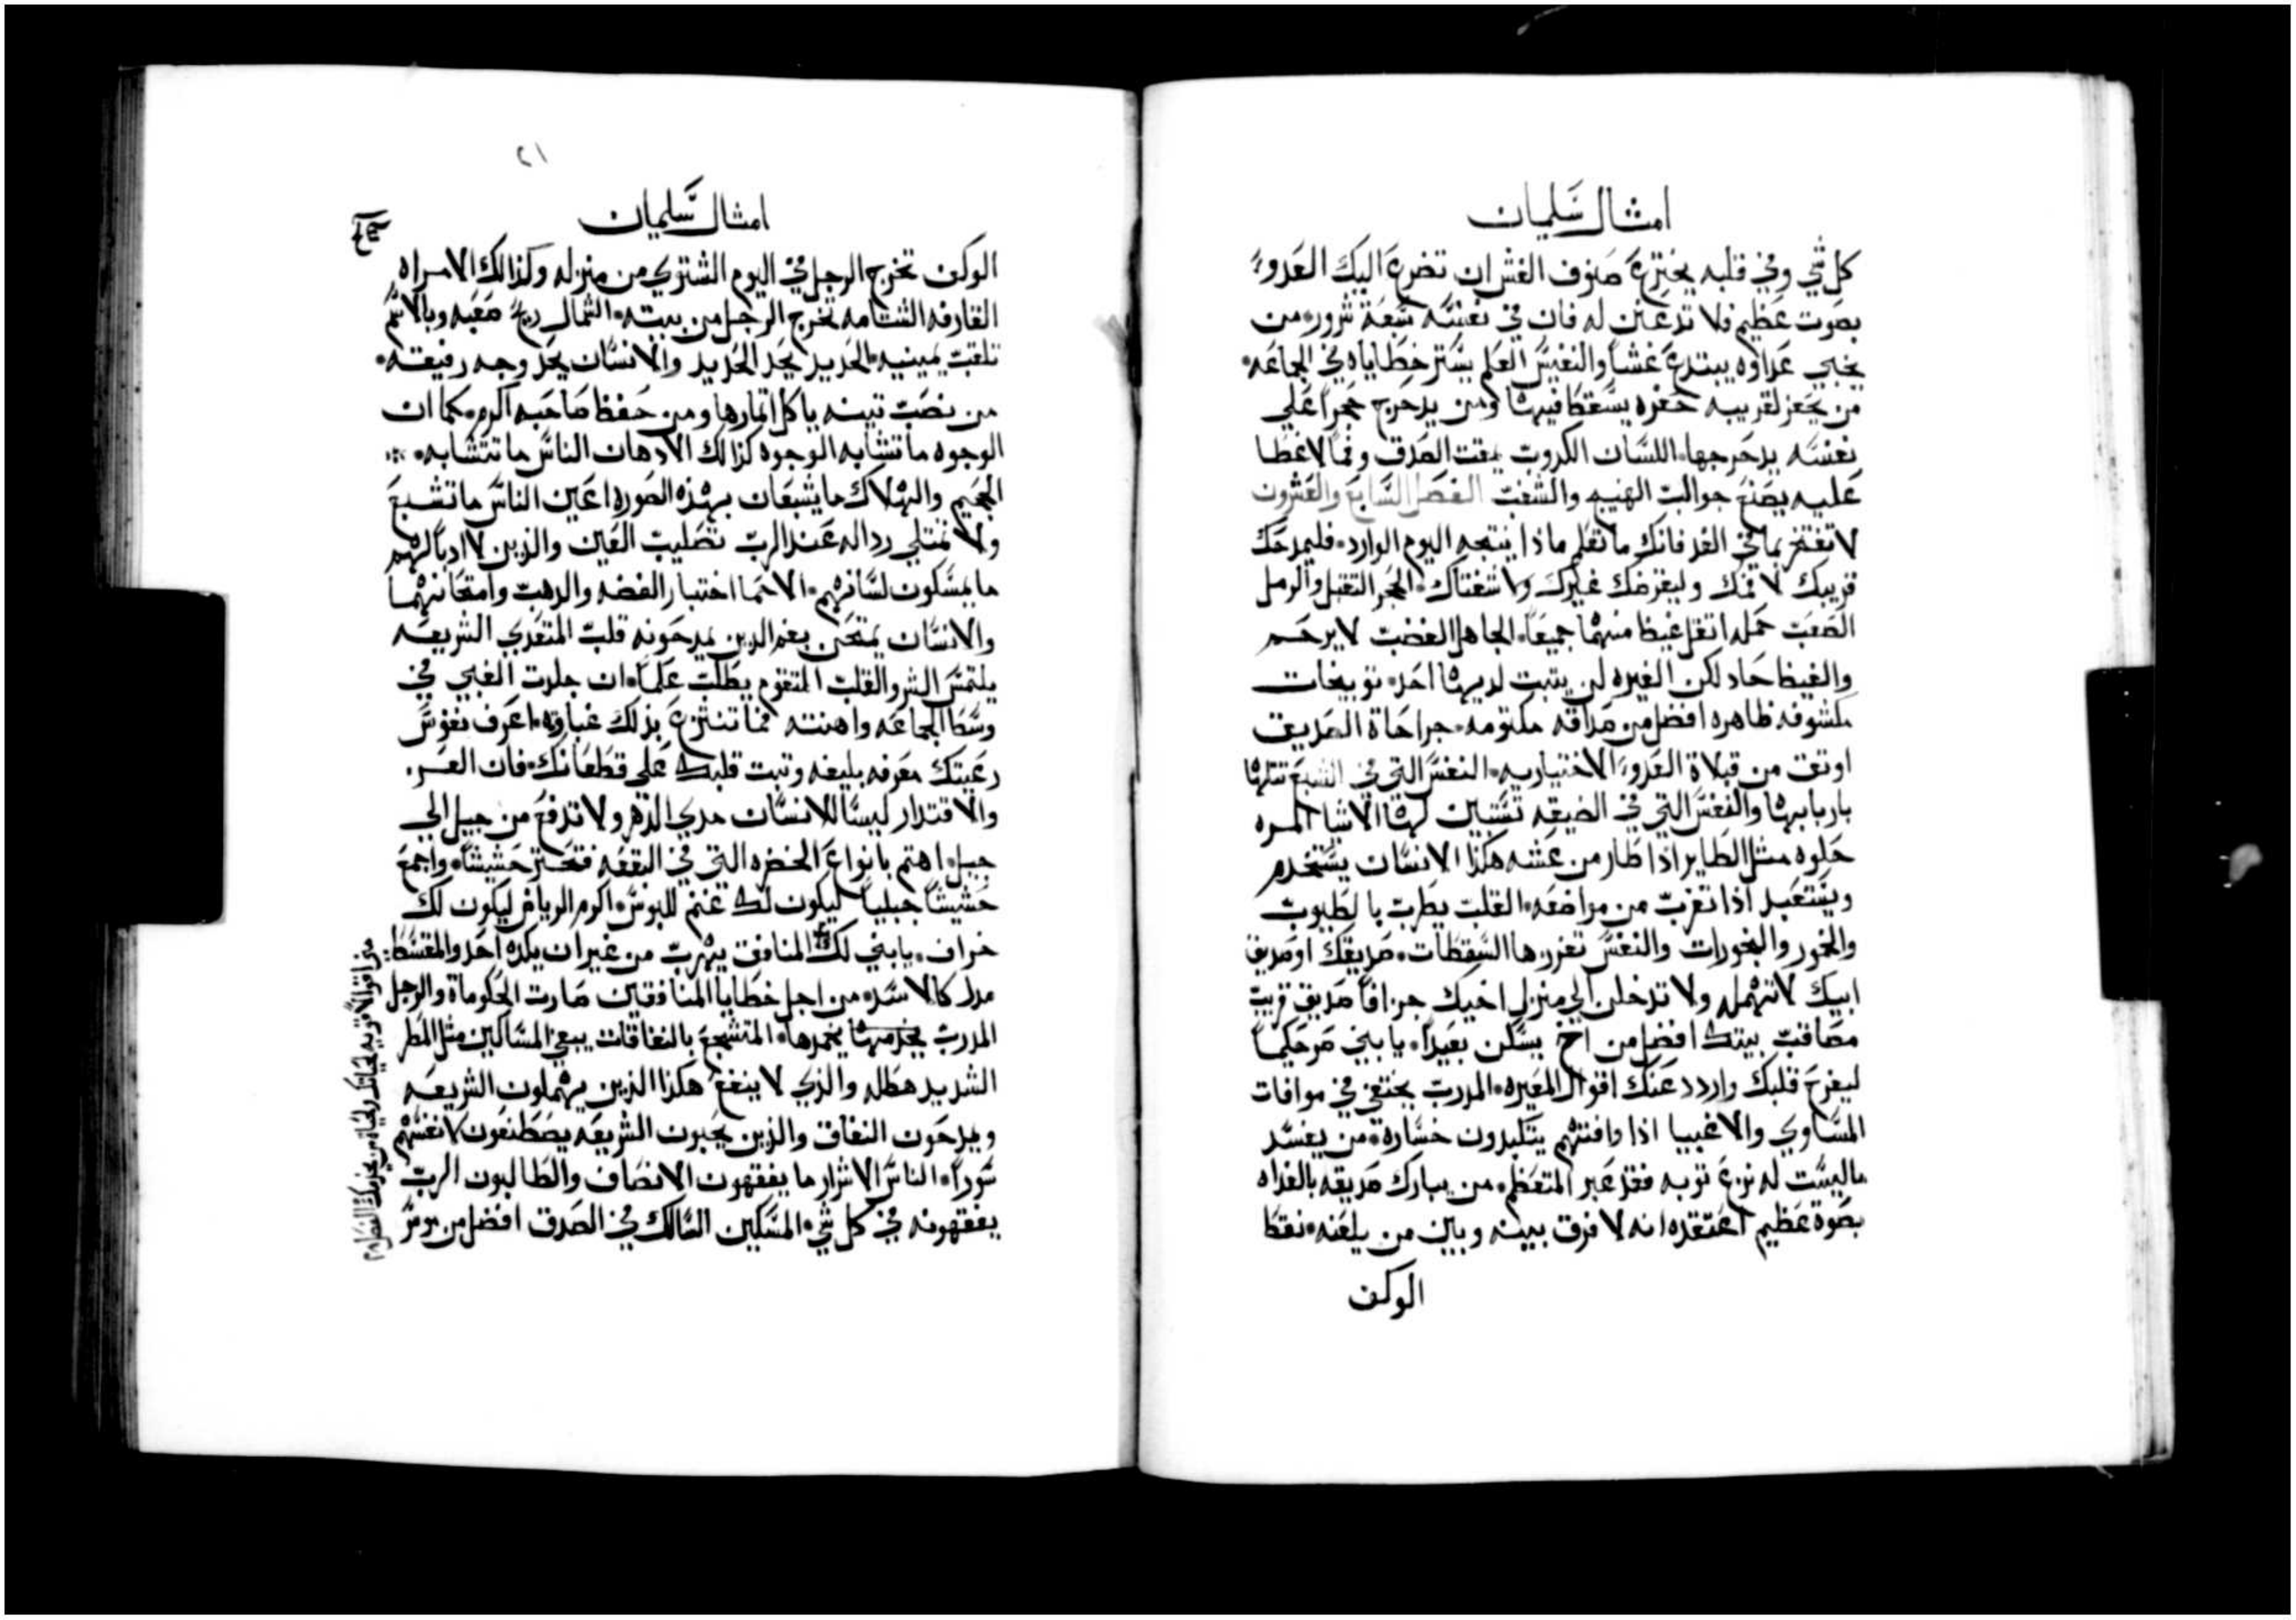 امثال سليمان
كل شي وفي قلبه يخترع صنوف الغش ان تضرع اليك العدو
بصوت عظيم فلا تذعنن له فان في نفسه سبعة شرور من
يخبي عداوه يبتدع غشا والنفيس العلم يستر خطاياه في الجماعه
من يحفر لقريبه حفره يسقط فيها ومن يدحرج حجرا علي
نفسه يدحرجها اللسان الكدوب يمقت الصدق وفما لا غطا
عليه يصنع الفصل السابع والعشرون
لا تفتخر بما في الغد فانك ما تعلم ماذا ينتجه اليوم الوارد فليمدحك
قريبك لا فمك وليقرضك غيرك ولا شفتاك الحجر الثقيل والرمل
الصعب حمله اثقل غيظا منهما جميعا الجاهل الغضب لا يرحم
والغيظ حاد لكن الغيره لن يثبت لديها احد توبيخات
مكشوفه ظاهره افضل من صداقه مكتومه جراحاة الصديق
اوثق من قبلاة العدو الاختياريه النفس التي في الشبع
والنفس التي في الضيقه تستبين لها الاشيا المره
حلوه مثل الطاير اذا طار من عشه هكذا الانسان يستخدم
ويستعبد اذا تغرب من مواضعه القلب يطرب بالطيوب
والخمور والبخورات والنفس تغررها السقطات صديقك او صديق
ابيك لا تهمله ولا تدخلن الي منزل اخيك جزافا صديق قريب
مصاقب بيتك افضل من اخ يسكن بعيدا يا بني صر حكيما
ليفرح قلبك واردد عنك اقوال المعيره المدرب يختفي في موافات
المساوي والاغبيا اذا وافتهم يتكبدون خساره من يفسد
ماليست له نزع ثوبه فقد عبر المتعظم من يبارك صديقه بالغداه
بصوة عظيم اعتقده انه لا فرق بينه وبين من يلعنه نقط
الوكن
٢١
امثال سليمان
الوكن تخرج الرجل في اليوم الشتوي من منزله وكذالك الامراه
القارفه الشتامه تخرج الرجل من بيته الشمال ريح صعبه وبالاسم
تلقب يمينيه الحديد يحد الحديد والانسان يحد وجه رفيقه
من نصب تينه ياكل اتمارها ومن حفظ صاحبه اكرم كما ان
الوجوه ما تشابه الوجوه كذالك الادهان الناس ما تتشابه
الجحيم والهلاك ما يشبعان بهذه الصوره اعين الناس ما تشبع
ولا تمتلي رداله عند الرب تصليب العين والذين لا ادبا لهم
ما يمسكون لسانهم الاحما اختبار الفضه والدهب وامتحانهما
والانسان يمتحن بفم الدين يمدحونه قلب المتعدي الشريعه
يلتمس الشر والقلب المتقوم يطلب علما ان جلدت الغبي في
وسط الجماعه واهنته فما تنتزع بذلك غباوته اعرف نفوس
رعيتك معرفه بليغه وثبت قلبك علي قطعانك فان العز
والاقتدار ليسا للانسان مدي الدهر ولا تدفع من جيل الي
جيل اهتم بانواع الخضره التي في البقعه حشيشا واجمع
حشيشا جبليا ليكون لك غنم للبوس اكرم الرياض ليكون لك
خراف يا بني لك المنافق يهرب من غير ان يكده احد والمقسط
مدل كالاسد من اجل خطايا المنافقين صارت الحكوماة والرجل
المدرب يخمدها المتشجع بالنفاقات يبغي المساكين مثل المطر
الشديد هطله والذي لا ينفع هكذا الذين يهملون الشريعه
ويمدحون النفاق والذين يحبون الشريعه يصطنعون لانفسهم
سورا الناس الاشرار ما يفقهون الانصاف والطالبون الرب
يفقهونه في كل شي المسكين السالك في الصدق افضل من موسر